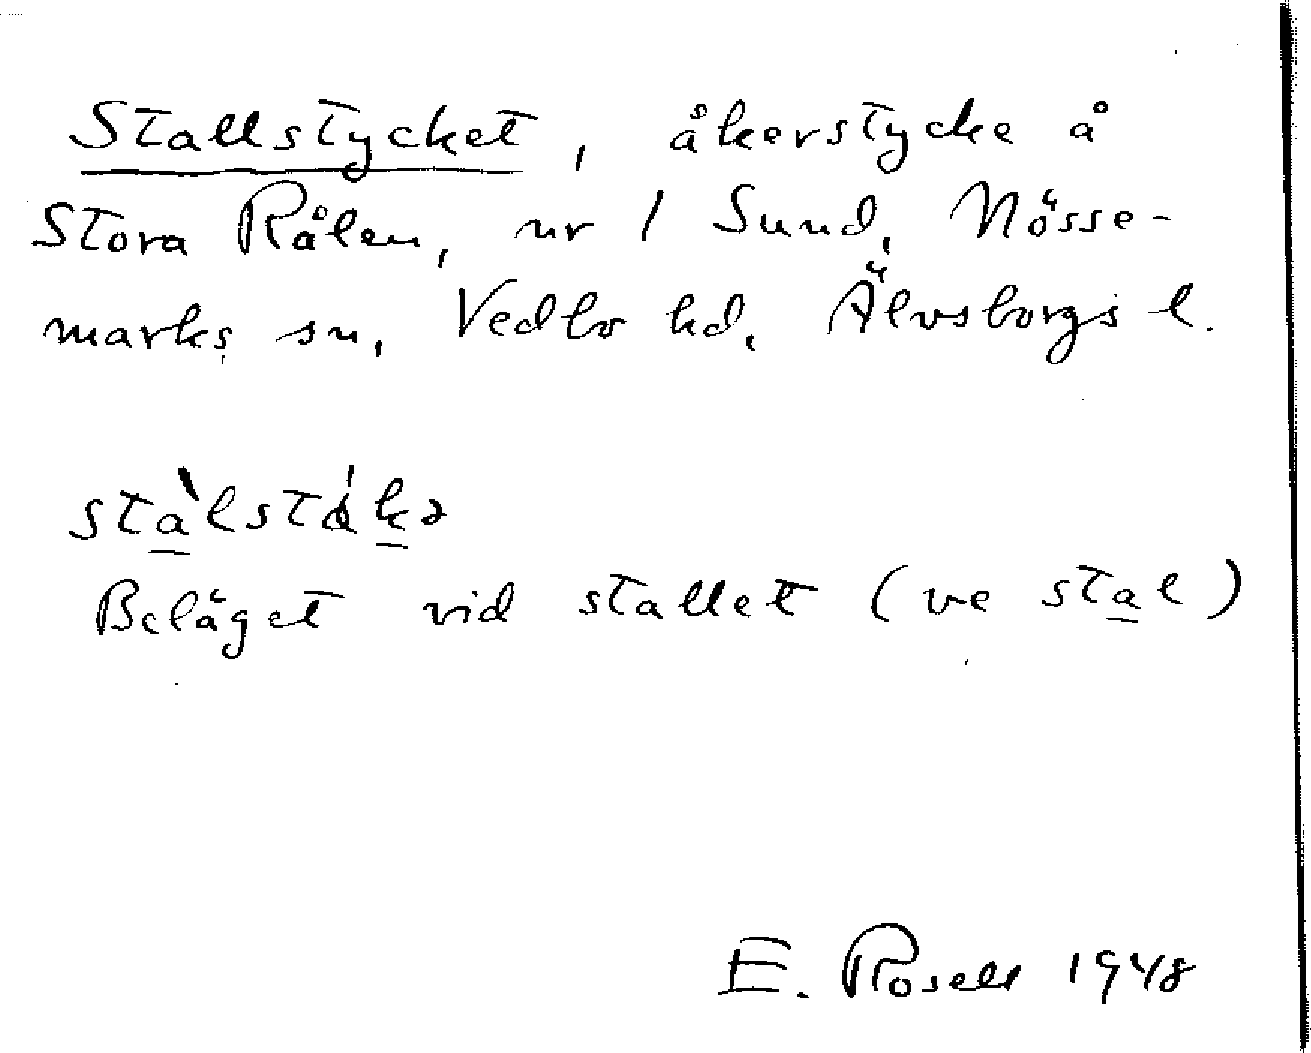 Stallstycket, åkerstycke å
Stora Rålen, nr 1 Sund, Nösse-
marks sn, Vedbo hd, Älvsborgs l.
Beläget vid stallet (ve stal)
E. Rosell 1948